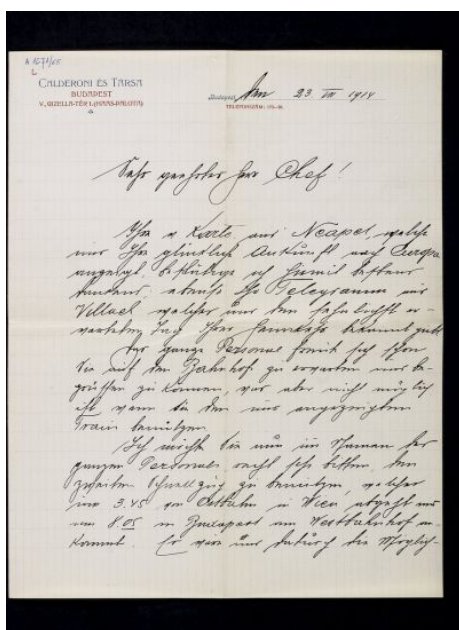 A 1671/65
L
CALDERONI ÉS TÁRSA
BUDAPEST
V., GIZELLA-TÉR 1. (HAAS-PALOTA)
Budapest, den 23 VII 1914
TELEFONSZÁM:
Sehr geehrter Herr Chef!
Ihre Karte aus Neapel, welche
uns Ihre glückliche Ankunft nach Europa
angezeigt, bestätige ich hiemit bestens
dankend, ebenso Ihr Telegramm aus
Villach, welcher uns den sehnlichst er-
warteten Tag Ihrer bekannt gibt.
Das ganze Personal freut sich schon
Sie auf dem Bahnhof zu erwarten und be-
grüssen zu können, was aber nicht möglich
ist, wenn Sie den uns angezeigten
Train benützen.
Ich möchte Sie nun im Namen des
ganzen Personals recht sehr bitten, den
zweiten Schnellzug zu benützen, welcher
um 3.45 Ostbahn in Wien abgeht und
um 8.05 in Budapest am Westbahnhof an-
kommt. Es wäre uns dadurch die Möglich-